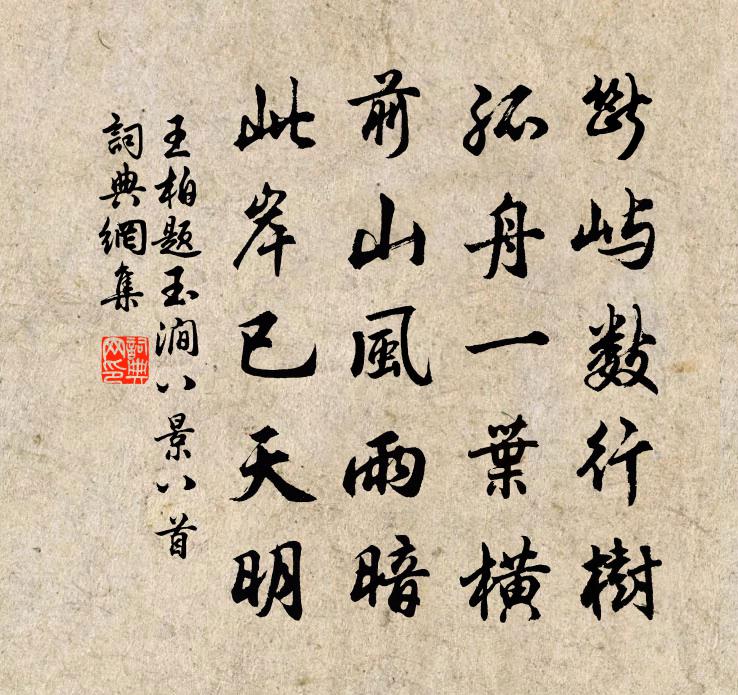 斷屿數行樹
孤舟一葉橫
前山風雨暗
此岸已天明
王柏题玉澗八景八首
詞典網集
詞典網印